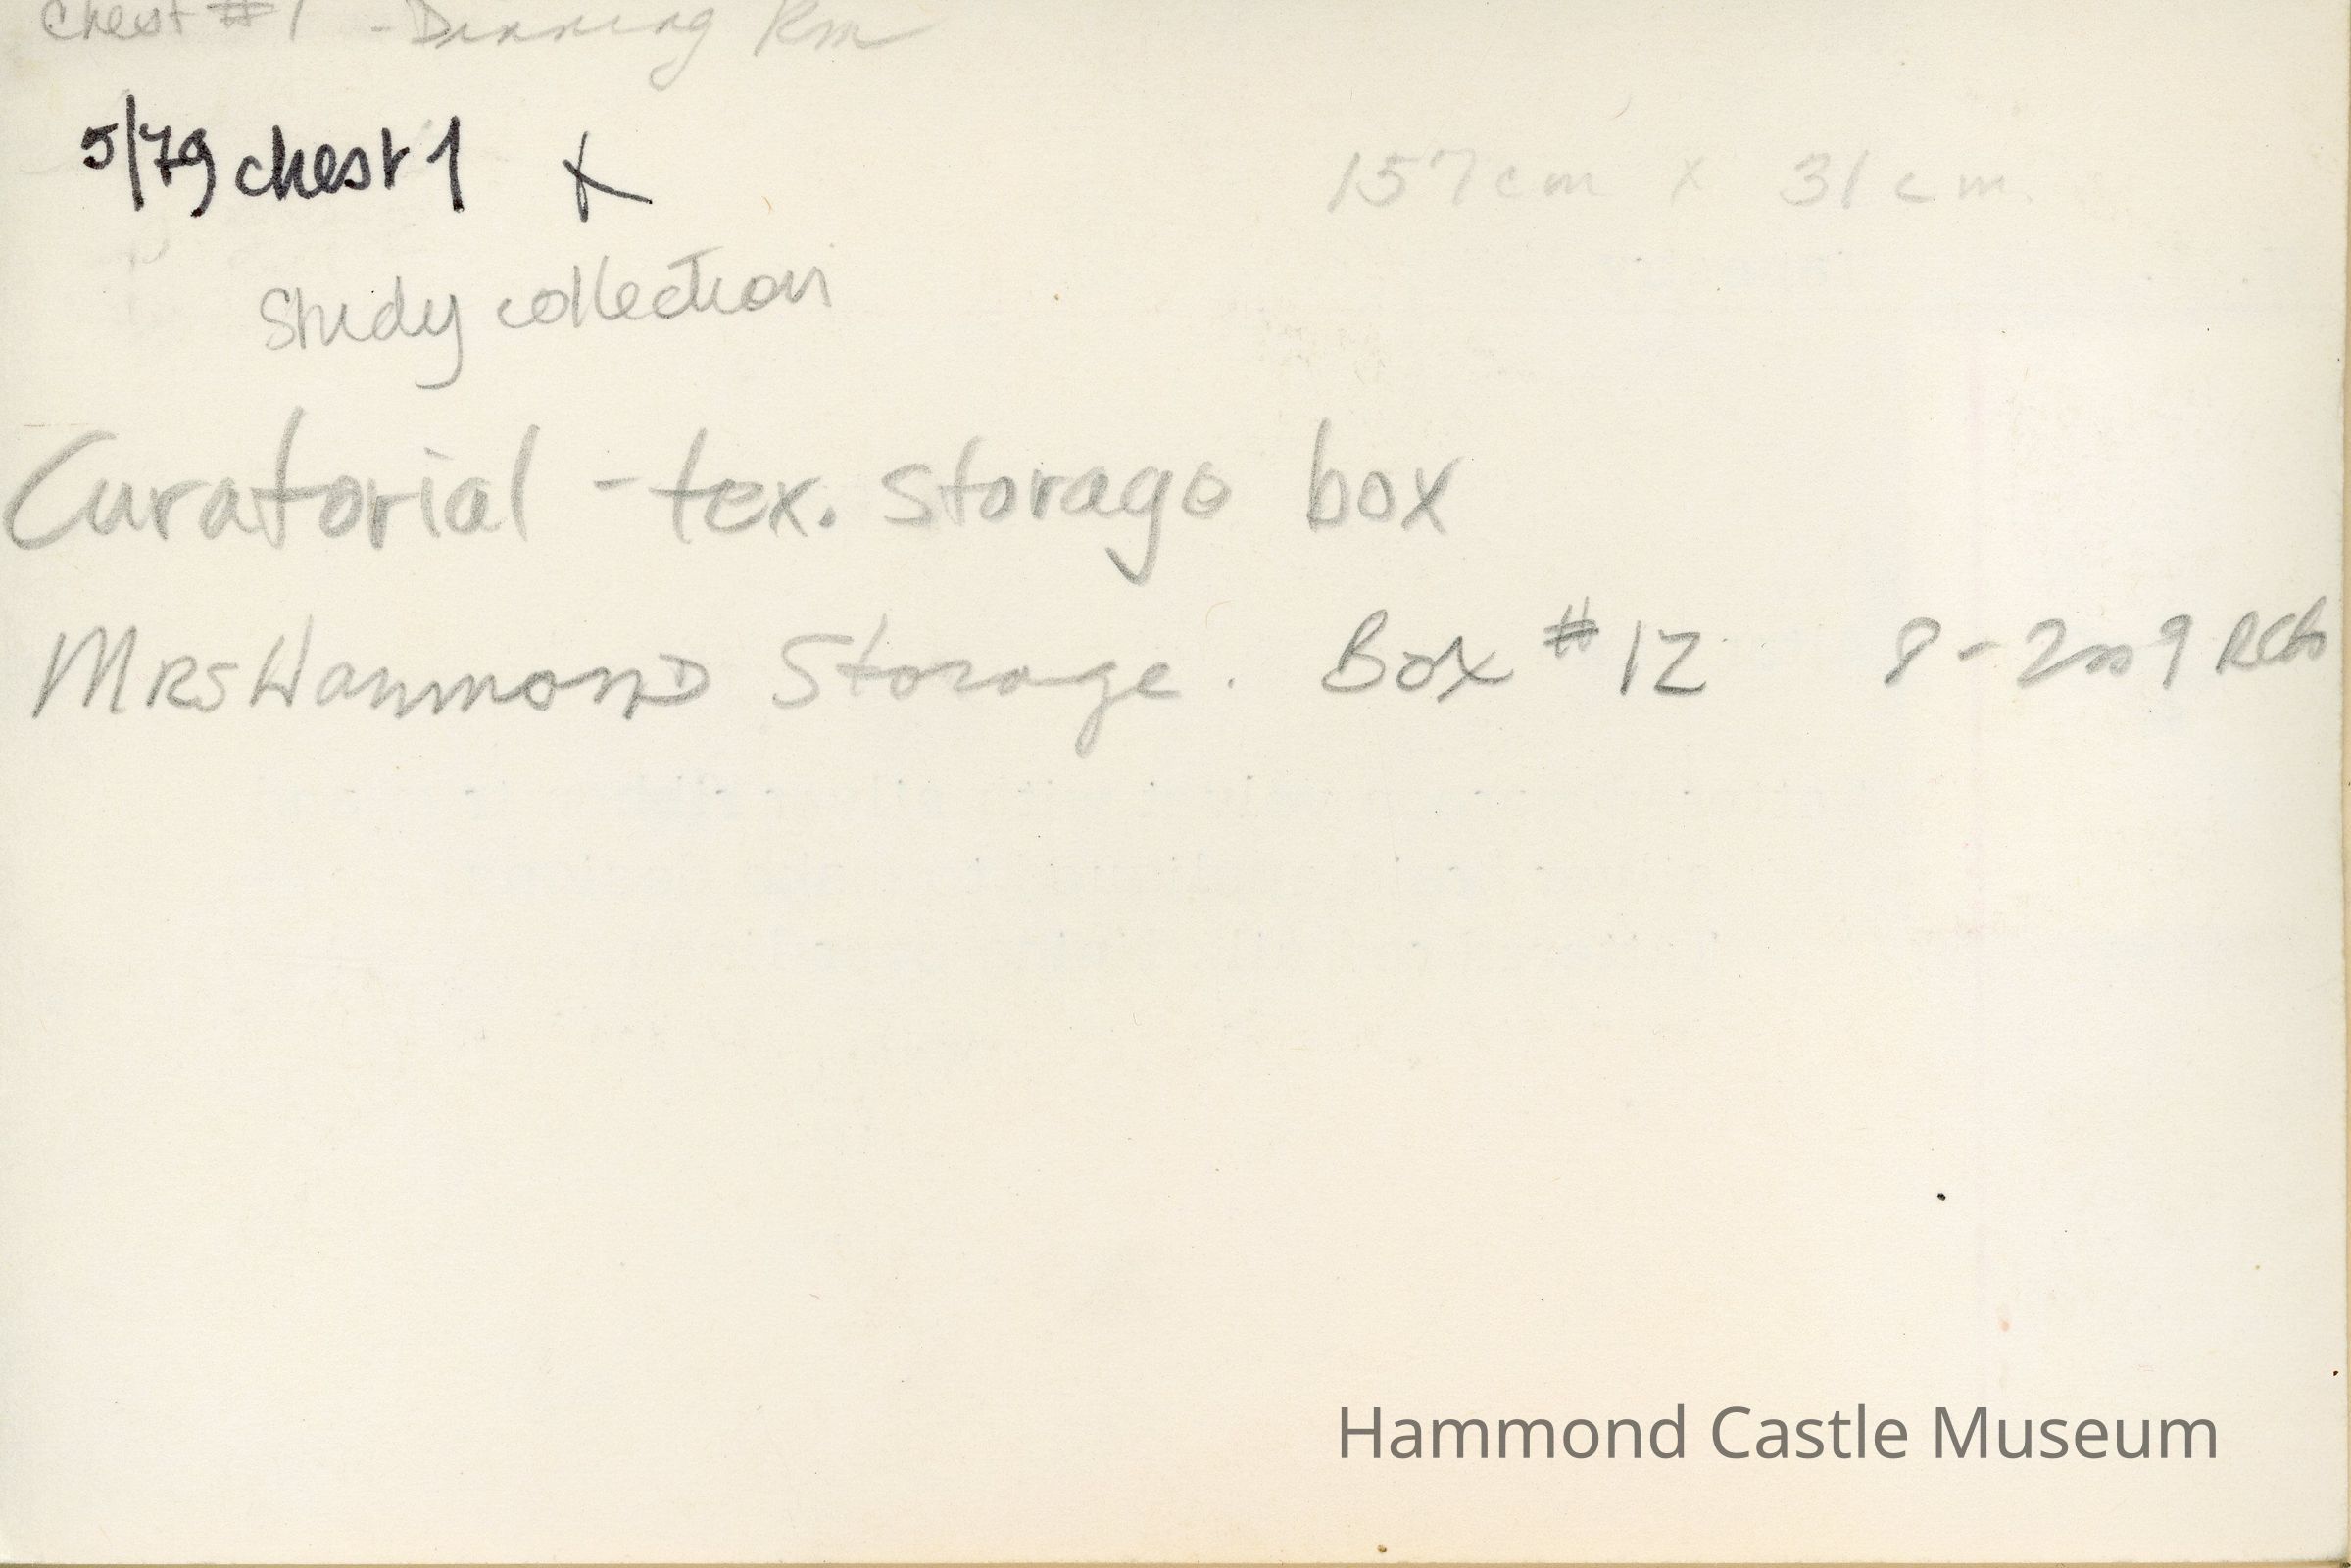 Chest #1 - Dinning Rm
5/79 chest 1 X
157cm x 31cm
Study collection
Curatorial - tex. storage box
MRS HammonD Storage. Box #12 8-2009
Hammond Castle Museum